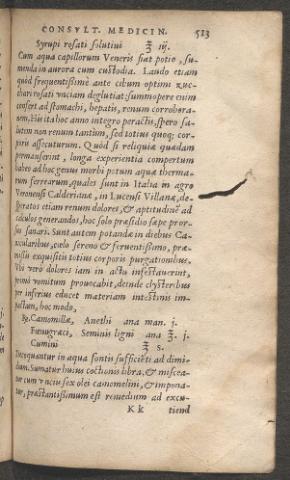 CONSVLT. MEDICIN. 513
Syrupi rosati solutiui ℥ iij.
Cum aqua capillorum Veneris fiat potio, su-
menda in aurora cum custodia. Laudo etiam
quòd frequentißimè ante cibum optimi zuc-
chari rosati vnciam deglutiat: summopere enim
confert ad stomachi, hepatis, renum corrobora-
nem, his ita hoc anno integro peractis, spero sa-
lutem non renum tantùm, sed totius quoq; cor-
poris assecuturum. Quòd si reliquiæ quædam
permanserint, longa experientia compertum
habeo ad hoc genus morbi potum aquæ therma-
rum ferrearum, quales sunt in Italia in agro
Veronensi Calderianæ, in Lucensi Villanæ, de-
speratos etiam renum dolores, & aptitudinẽ ad
calculos generandos, hoc solo præsidio sæpe pror-
sus sanari. Sunt autem potandæ in diebus Ca-
nicularibus, cælo sereno & feruentißimo, præ-
mißis exquisitis totius corporis purgationibus.
Vbi verò dolores iam in actu infestauerint,
primò vomitum prouocabit, deinde clysteribus
per inferius educet materiam intestinis im-
pactum, hoc modo,
℞. Camomillæ, Anethi ana man. j.
Fœnugræci, Seminis ligni ana ℥. j.
Cumini ℥ s.
Decoquantur in aqua fontis sufficiẽti ad dimi-
dium. Sumatur huius coctionis libra, & miscea-
tur cum vnciis sex olei camomelini, & impona-
tur, præstantißimum est remedium ad excu-
K k tiend